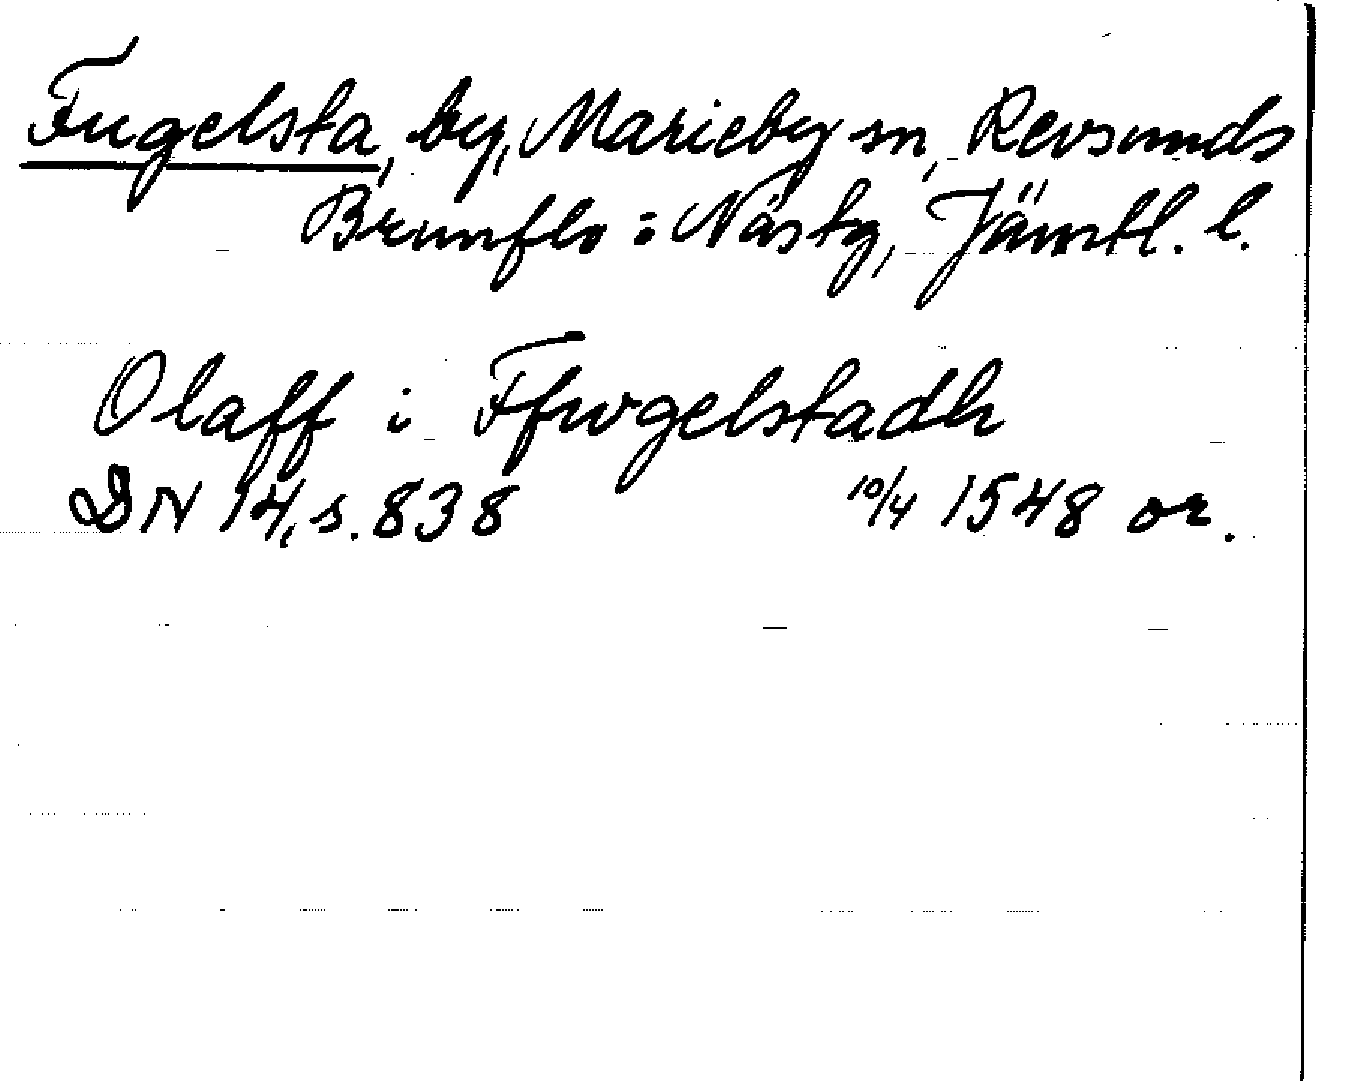 Fugelsta, by, Marieby sn, Revsunds
Brunflo o Näs tg, Jämtl. l.
Olaff i Ffwgelstadh
DN 14, s. 838 10/4 1548 or.